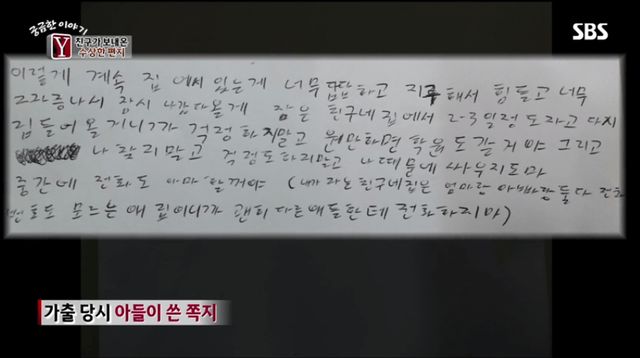 궁금한 이야기
Y 친구가 보내온
수상한 편지
SBS
이렇게 계속 집에서 있는게 너무 답답하고 지루해서 힘들고 너무
짜증나서 잠시 나갔다올게 잠은 친구네 집에서 2-3일정도자고 다시
집 들어올거니까 걱정하지말고 웬만하면 학원도 갈거야 그리고
나 찾지말고 걱정도하지말고 나때문에 싸우지도마
중간에 전화도 아마 할꺼야 (내가 자는 친구네집은 엄마랑 아빠랑 둘다 전화
번호도 모르는 애 집이니까 괜히 다른애들한테 전화하지마)
가출 당시 아들이 쓴 쪽지